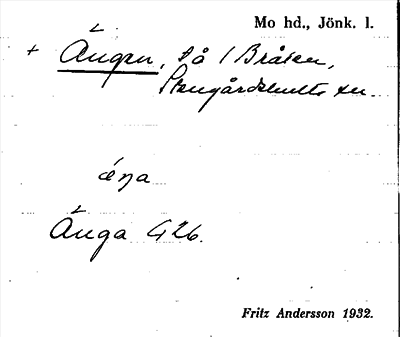 Mo hd., Jönk. l.
+ Ängen, så i Bråten,
Stengårdshults sn.
äŋa
Änga 426.
Fritz Andersson 1932.